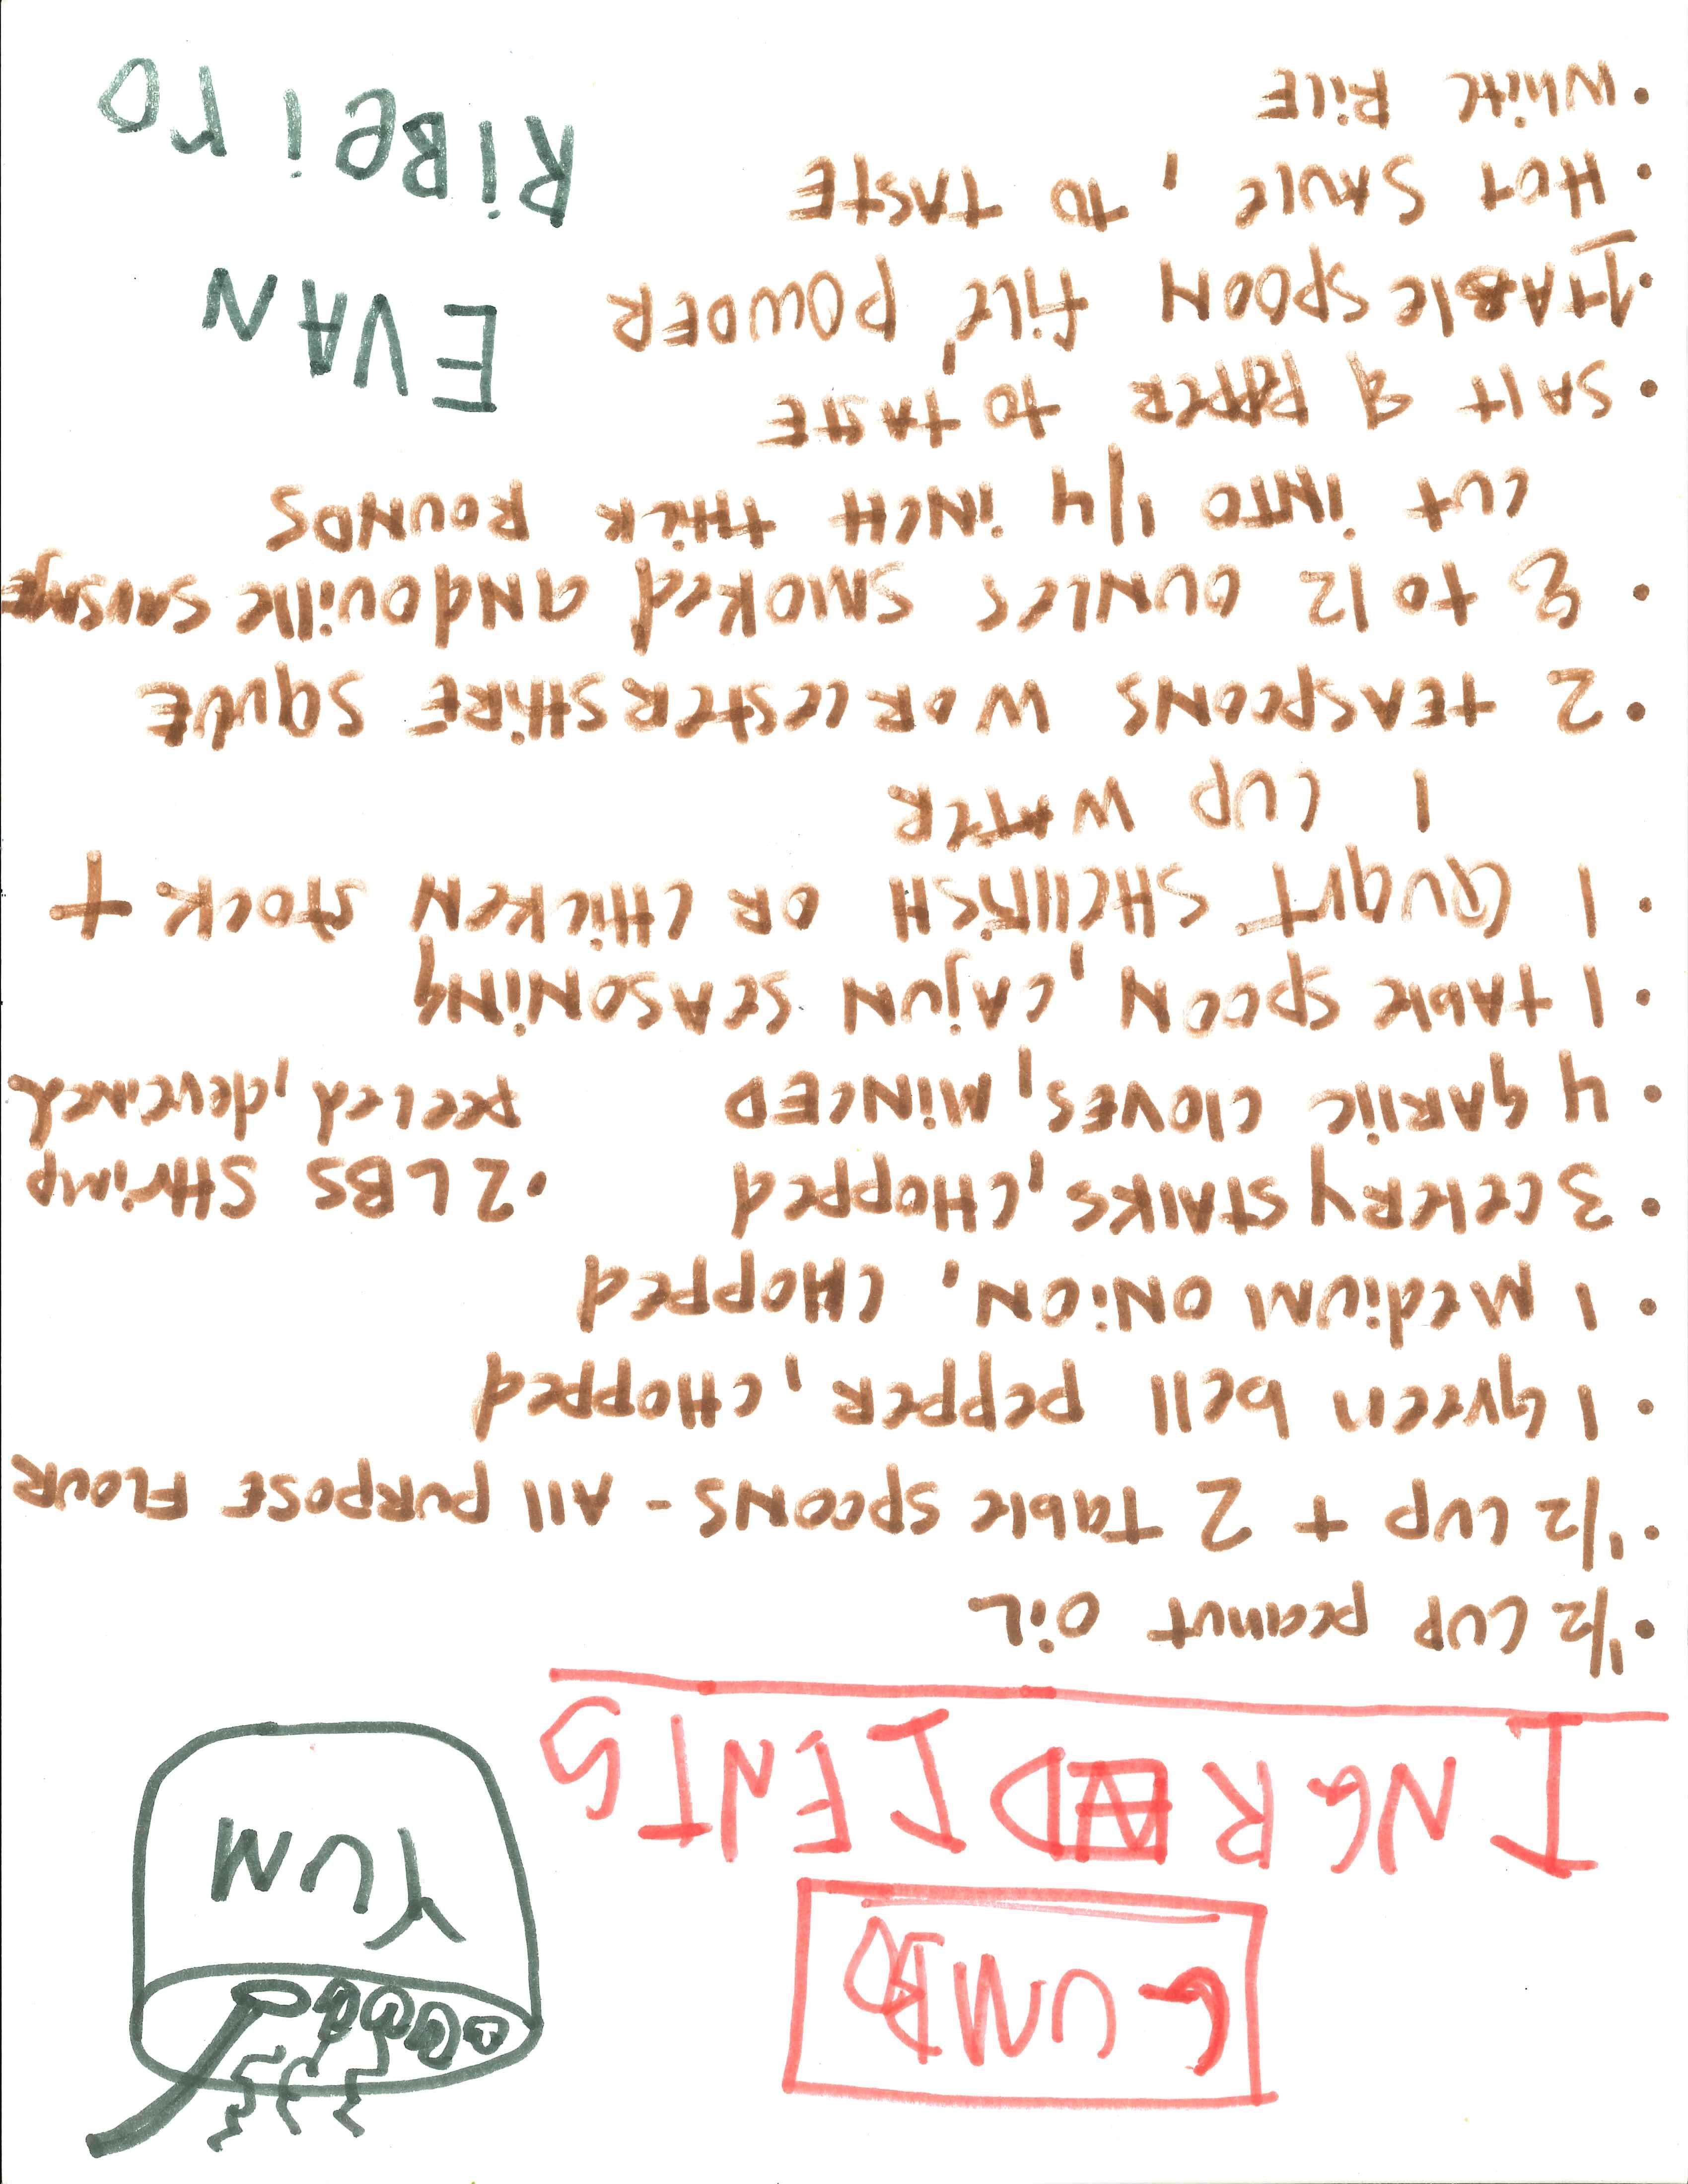 GUMBO
INGREDIENTS
YUM
• 1/2 CUP peanut OiL
• 1/2 CUP + 2 Table SPOONS - All PURPOSE FLOUR
• 1 green bell pepper, CHOPPed
• 1 Medium ONiON, CHOPPed
• 3 celery STALKS, CHOPPed
• 4 GARlic cloves, MiNCED
• 2 LBS SHrimp
peeled, deveined
• 1 TAble SPOON, CAjUN SEASONiNg
• 1 QUart SHellfisH OR CHicKeN STOCK +
1 CUP WATER
• 2 TEASPOONS WORCESTERSHiRE SQUCE
• 8 to 12 OUNCES SMOKed andouille sausage
CUT iNTO 1/4 iNCH THiCK ROUNDS
• SAlT & PePPER TO TASTE
• 1 TABle SPOON filé POWDER
• HOT SAUCE, TO TASTE
• WHiTe RiCE
EVAN
RiBeiro